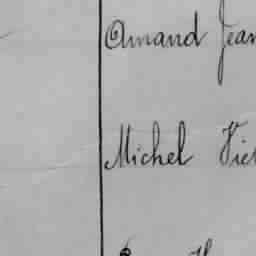 Amand Jean
Michel Vict